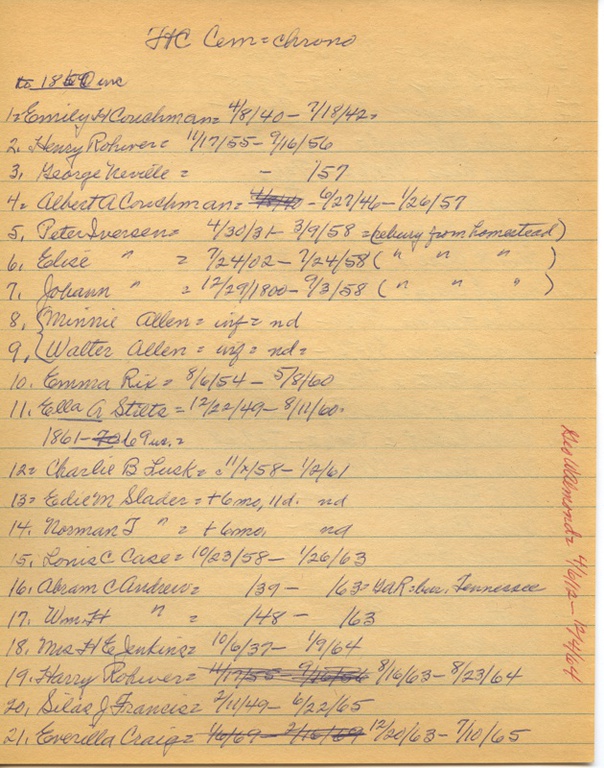 HC Cem = chrono
to 1860 inc
1= Emily H Couchman = 4/8/40 - 7/18/42 =
2. Henry Rohwer = 11/17/55 - 9/16/56
3, George Neville = - /57
4= Albert A Couchman = - 6/27/46 - 1/26/57
5, Peter Iversen = 4/30/31 - 3/9/58 = (rebury from homestead)
6. Elise " = 7/24/02 - 7/24/58 ( " " " )
7. Johann " = 12/29/1800 - 9/3/58 ( " " " )
8, {Minnie Allen = inf = nd
9, {Walter Allen = inf = nd =
10. Emma Rix = 8/6/54 - 5/8/60
11. Ella A Streets = 12/22/49 - 8/11/60.
1861 - 70 69 inc. =
12= Charlie B Lusk = 11/ /58 - 1/2/61
13= Edie M Slader = + 6 mo, 11d. nd
14. Norman T " = + 6 mo, nd
15, Louis C Case = 10/23/58 - 1/26/63
16, Abram C Andrew = /39 - /63 = GAR = bur. Tennessee
17. Wm. H " = /48 - /63
18. Mrs H E Jenkins = 10/6/37 - 1/9/64
19. Harry Rohwer = 11/17/55 - 9/16/56 8/16/63 - 8/23/64
20, Silas J Francis = 2/11/49 - 6/22/65
21. Everilla Craig = 1/6/69 - 2/16/69 12/20/63 - 7/10/65
Geo Walmond = 4/6/12 - 12/4/64